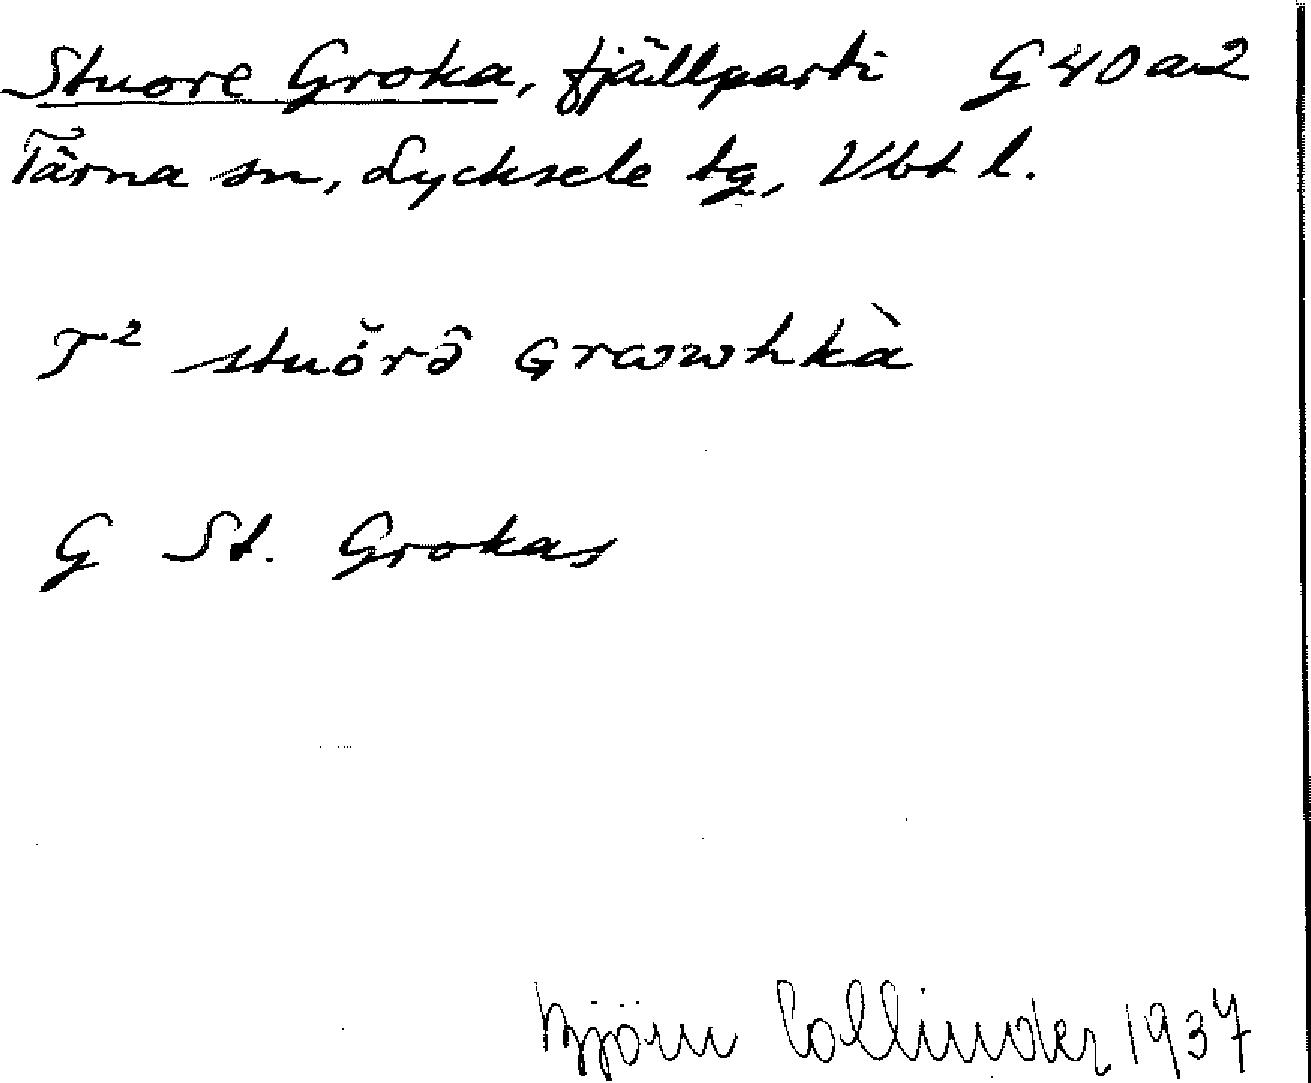 Stuore Groka, fjällparti G 40 a2
Tärna sn, Lycksele tg, Vbt l.
T²
G St. Grokas
Björn Collinder 1937